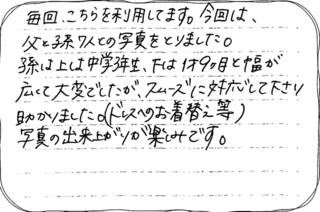 毎回、こちらを利用してます。今回は、
父と孫7人との写真をとりました。
孫は上は中学3年生、下は1才9ヶ月と幅が
広くて大変でしたが、スムーズに対応して下さり
助かりました。(ドレスへのお着替え等)
写真の出来上がりが楽しみです。